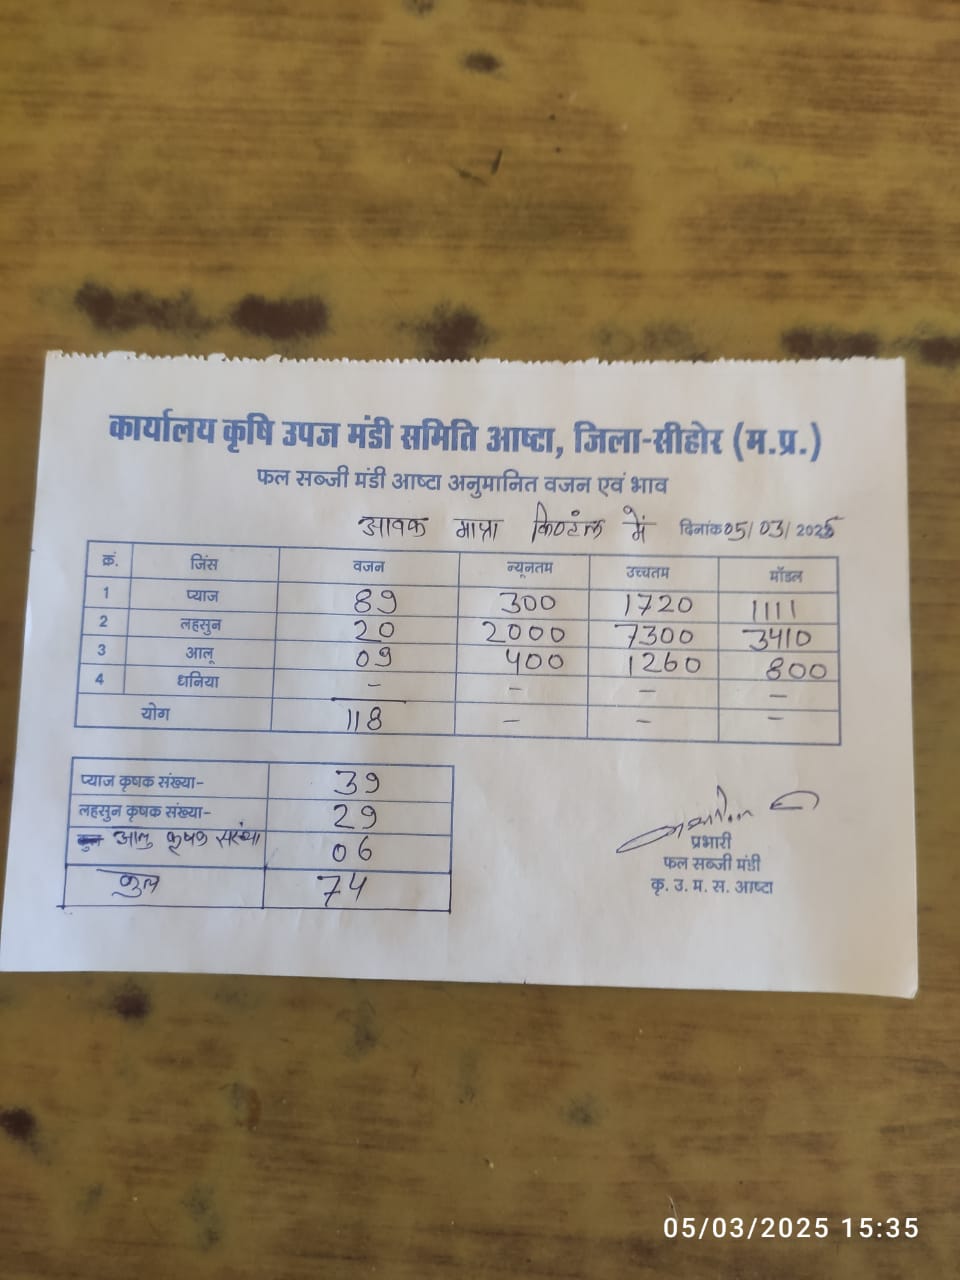 कार्यालय कृषि उपज मंडी समिति आष्टा, जिला-सीहोर (म.प्र.)
फल सब्जी मंडी आष्टा अनुमानित वजन एवं भाव
आवक मात्रा किंव्टल में दिनांक 05/03/2025
क्रं. जिंस वजन न्यूनतम उच्चतम मॉडल
1 प्याज 89 300 1720 1111
2 लहसुन 20 2000 7300 3410
3 आलू 09 400 1260 800
4 धनिया - - - -
योग 118 - - -
प्याज कृषक संख्या- 39
लहसुन कृषक संख्या- 29
आलु कृषक संख्या 06
कुल 74
प्रभारी
फल सब्जी मंडी
कृ. उ. म. स. आष्टा
05/03/2025 15:35